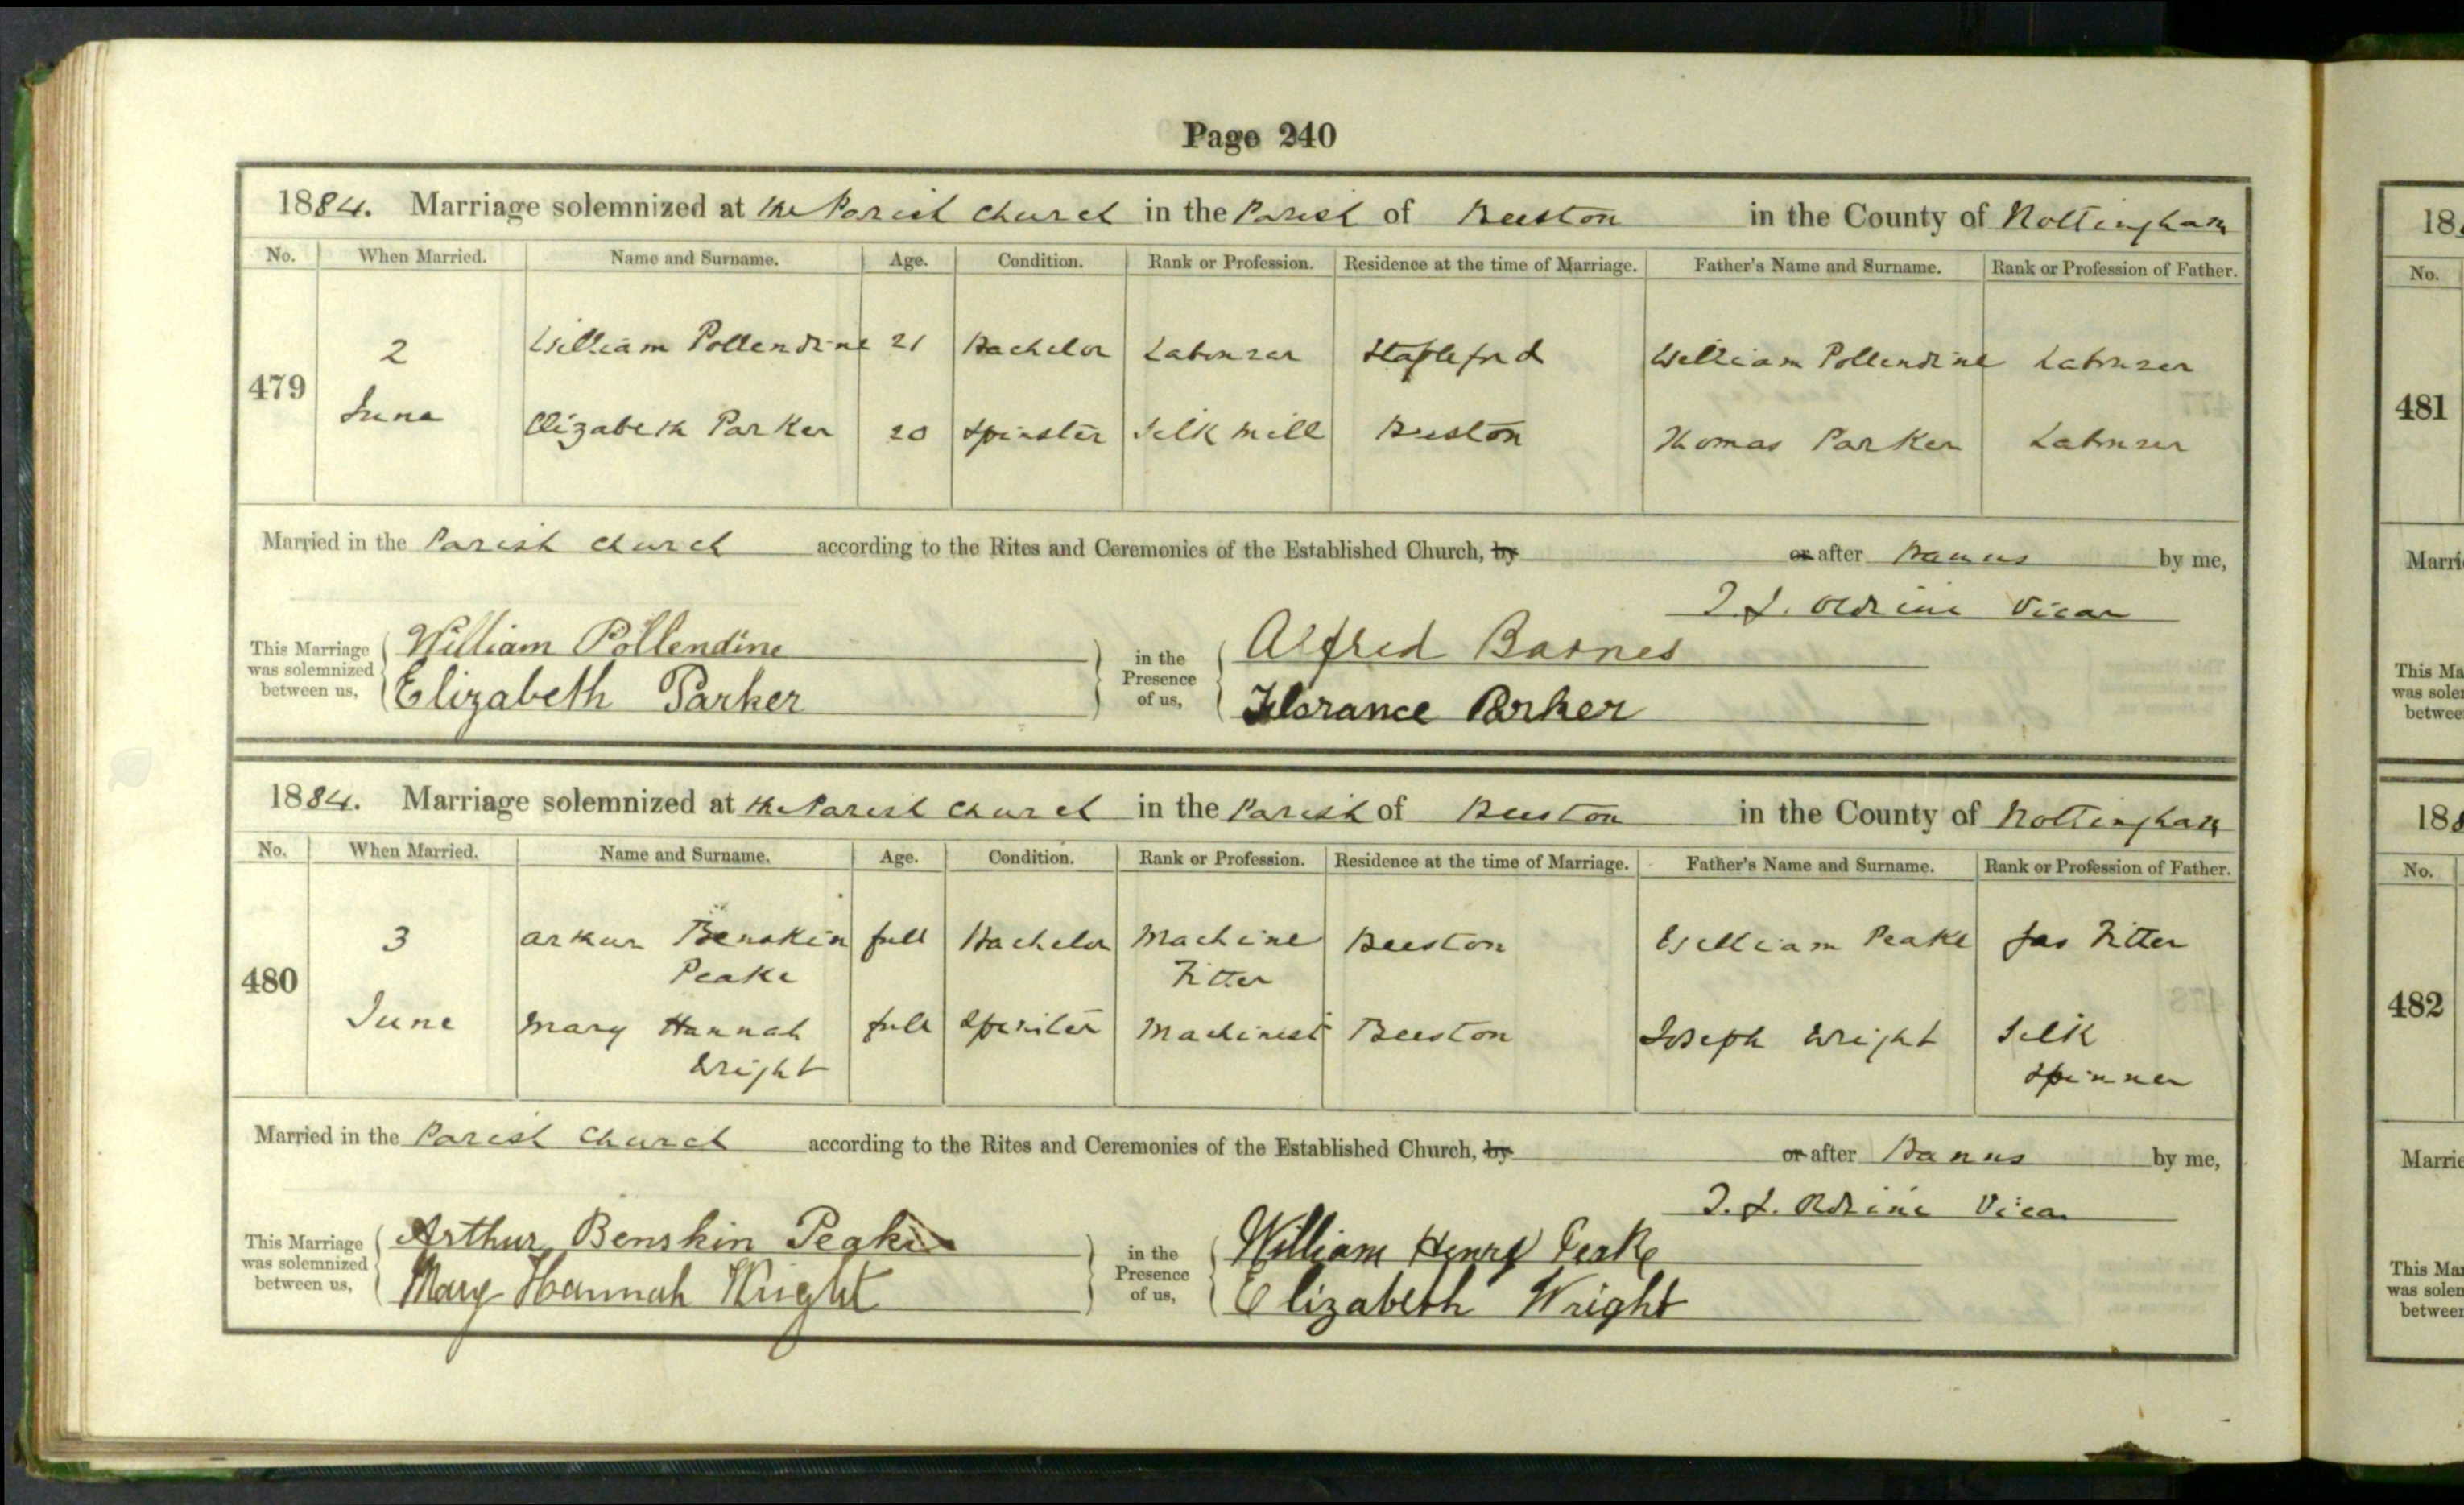 Page 240
1884. Marriage solemnized at the Parish Church in the Parish of Beeston in the County of Nottingham
No. When Married. Name and Surname. Age. Condition. Rank or Profession. Residence at the time of Marriage. Father's Name and Surname. Rank or Profession of Father.
479
2 William Pollendine 21 Bachelor Labourer Stapleford William Pollendine Labourer
June Elizabeth Parker 20 Spinster Silk Mill Beeston Thomas Parker Labourer
Married in the Parish Church according to the Rites and Ceremonies of the Established Church, by or after Banns by me,
Vicar
This Marriage was solemnized between us, William Pollendine in the Presence of us, Alfred Barnes
Elizabeth Parker Florance Parker
1884. Marriage solemnized at the Parish Church in the Parish of Beeston in the County of Nottingham
No. When Married. Name and Surname. Age. Condition. Rank or Profession. Residence at the time of Marriage. Father's Name and Surname. Rank or Profession of Father.
480
3 Arthur Benskin full Bachelor Machine Beeston William Peake Gas Fitter
Peake Fitter
June Mary Hannah full Spinster Machinist Beeston Joseph Wright Silk
Wright Spinner
Married in the Parish Church according to the Rites and Ceremonies of the Established Church, by or after Banns by me,
Vicar
This Marriage was solemnized between us, Arthur Benskin Peake in the Presence of us, William Henry Peake
Mary Hannah Wright Elizabeth Wright
18
No.
481
Marri
This Ma
was sole
betwee
188
No.
482
Marrie
This Mar
was solen
between